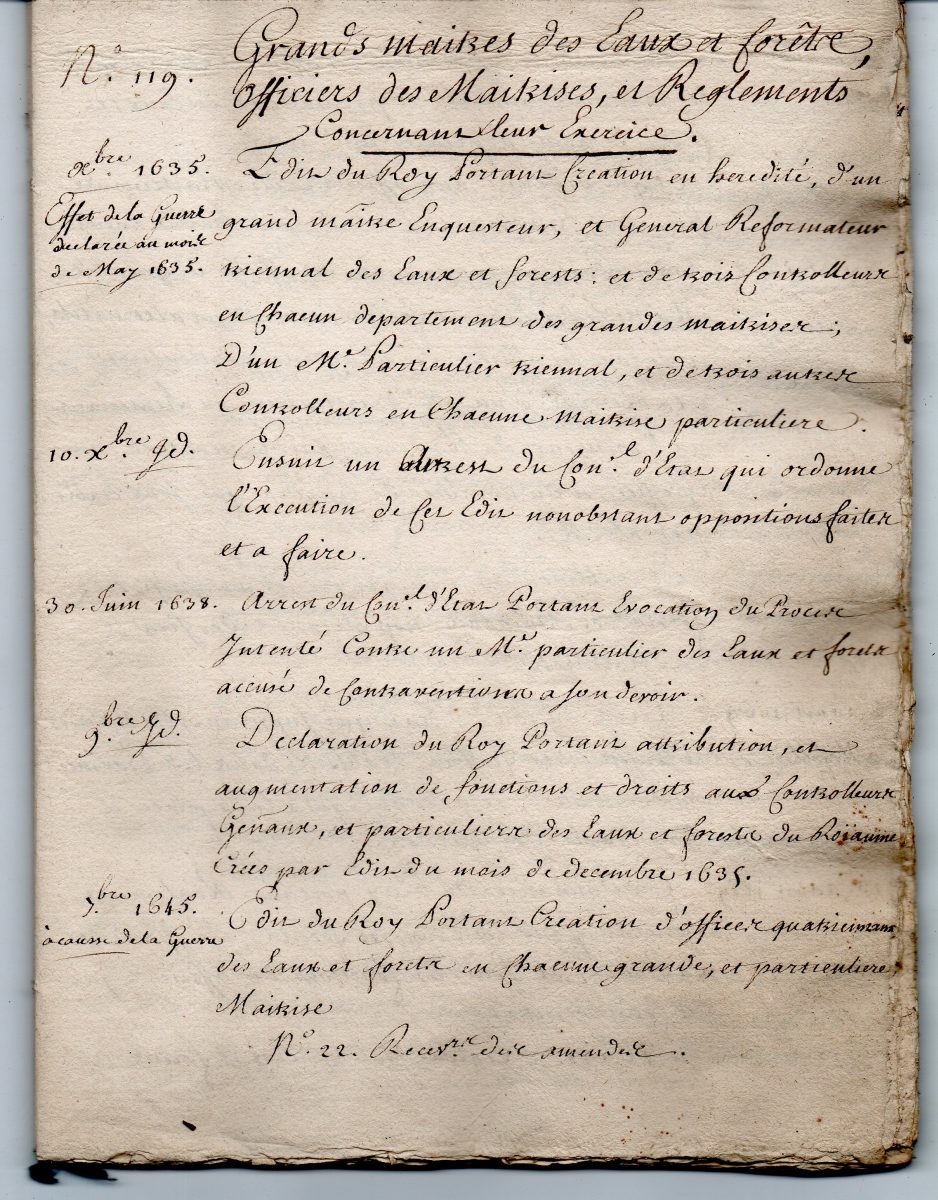 N.º 119.
Grands maitres des Eaux et forêts,
officiers des Maitrises, et Reglements
Concernant leur Exercice.
xbre. 1635.
Edit du Roy Portant Creation en heredité, d'un
Effet de la Guerre
declarée au mois
de May 1635.
grand maitre Enquesteur, et General Reformateur
triennal des Eaux et forests: et de trois Controlleurs
en Chacun departement des grandes maitrises;
D'un Me. Particulier triennal, et de trois autres
Controlleurs en Chacune maitrise particuliere.
10. xbre. Jd.
Ensuit un Arrest du Con.l d'Etat qui ordonne
l'Execution de Cet Edit nonobstant oppositions faites
et a faire.
30. Juin 1638.
Arrest du Con.l d'Etat Portant Evocation du Proces
Intenté Contre un Me. particulier des Eaux et forets
accusé de Contraventions a son devoir.
9.bre Jd.
Declaration du Roy Portant attribution, et
augmentation de fonctions et droits aux Controlleurs
Genaux, et particuliers des Eaux et forests du Roïaume
Crées par Edit du mois de decembre 1635.
7.bre 1645.
à cause de la Guerre
Edit du Roy Portant Creation d'offices quatriennaux
des Eaux et forets en Chacune grande, et particuliere
Maitrise
Nº. 22. Recevrs. des amendes.